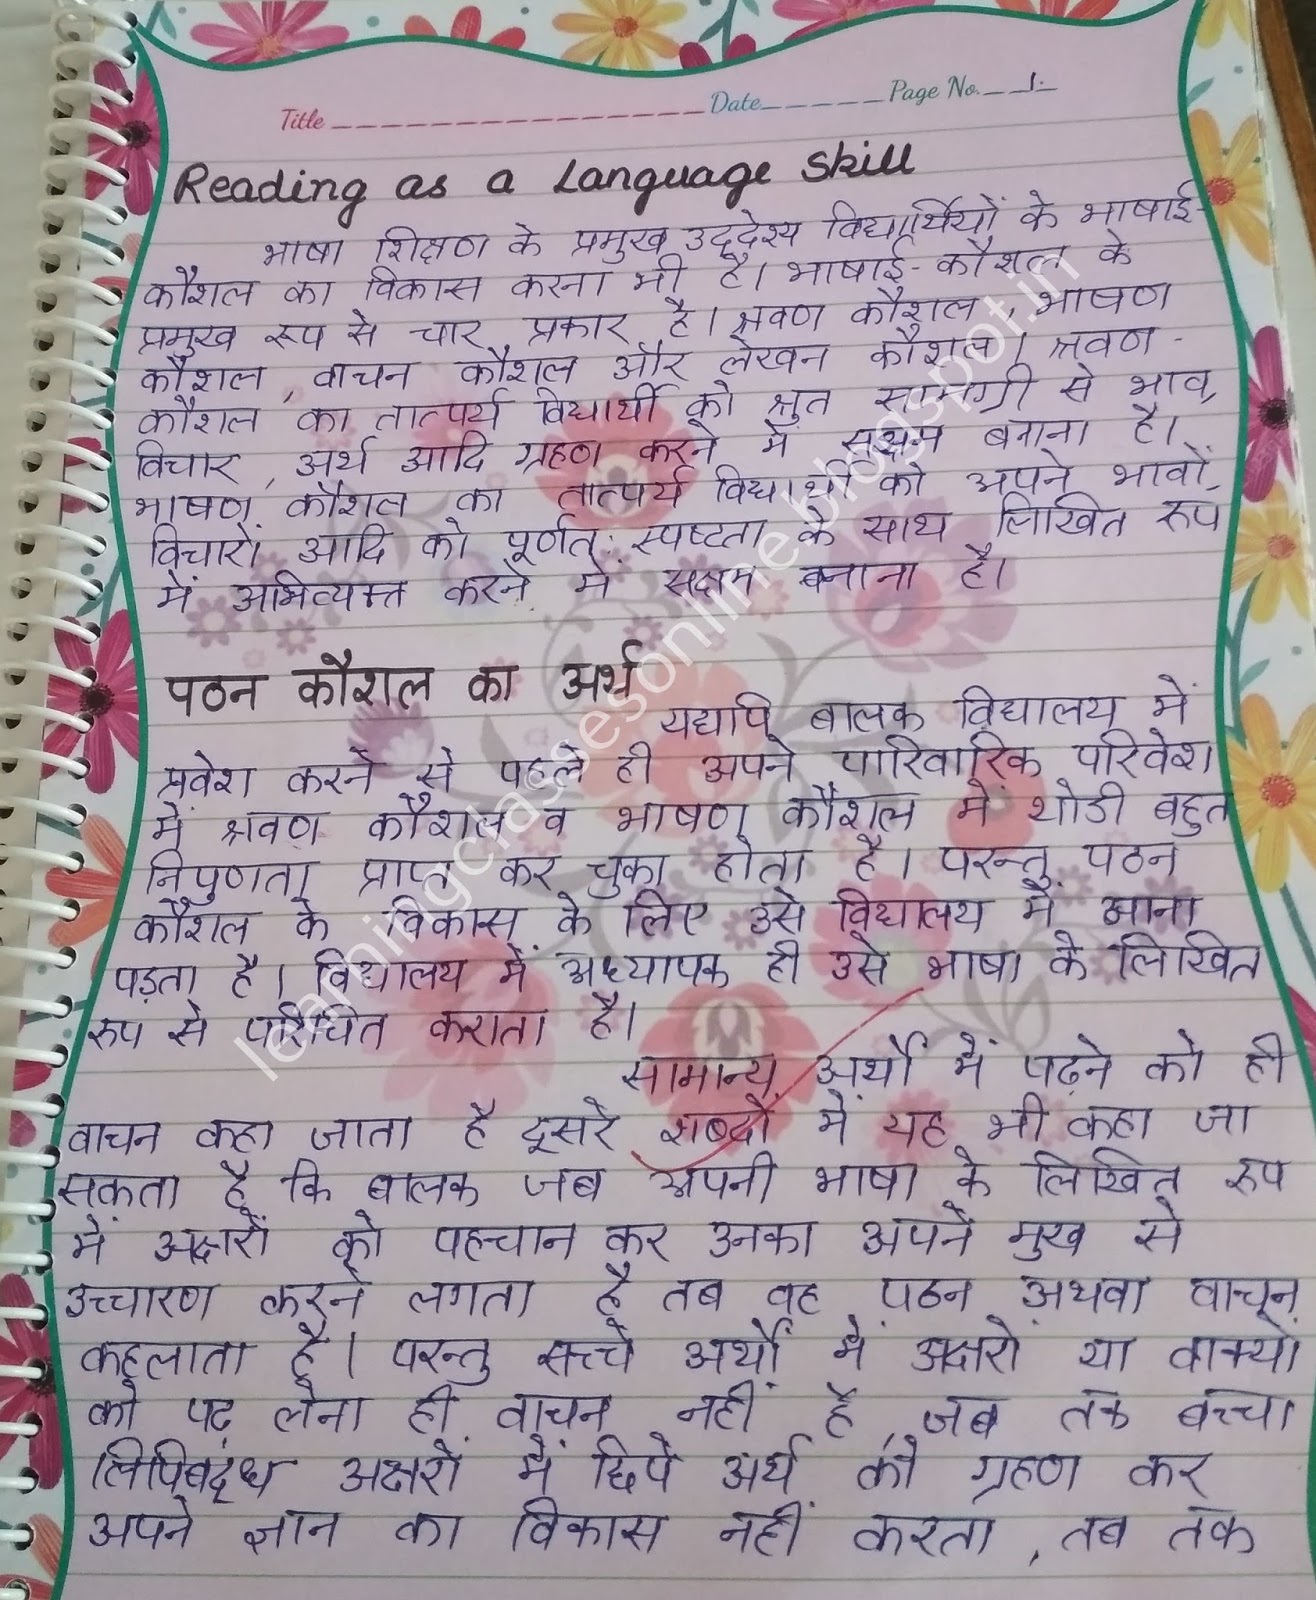 Title Date Page No. 1.
Reading as a Language Skill
भाषा शिक्षण के प्रमुख उद्देश्य विद्यार्थियों के भाषाई-
कौशल का विकास करना भी है। भाषाई-कौशल के
प्रमुख रूप से चार प्रकार है। श्रवण कौशल, भाषण
कौशल, वाचन कौशल और लेखन कौशल। श्रवण-
कौशल का तात्पर्य विद्यार्थी को श्रुत सामग्री से भाव,
विचार, अर्थ आदि ग्रहण करने में सक्षम बनाना है।
भाषण कौशल का तात्पर्य विद्यार्थी को अपने भावों,
विचारों आदि को पूर्णत: स्पष्टता के साथ लिखित रूप
में अभिव्यक्त करने में सक्षम बनाना है।
पठन कौशल का अर्थ
यद्यपि बालक विद्यालय में
प्रवेश करने से पहले ही अपने पारिवारिक परिवेश
में श्रवण कौशल व भाषण कौशल में थोडी बहुत
निपुणता प्राप्त कर चुका होता है। परन्तु पठन
कौशल के विकास के लिए उसे विद्यालय में आना
पड़ता है। विद्यालय में अध्यापक ही उसे भाषा के लिखित
रूप से परिचित कराता है।
सामान्य अर्थों में पढ़ने को ही
वाचन कहा जाता है दूसरे शब्दों में यह भी कहा जा
सकता है कि बालक जब अपनी भाषा के लिखित रूप
में अक्षरों को पहचान कर उनका अपने मुख से
उच्चारण करने लगता है तब वह पठन अथवा वाचन
कहलाता है। परन्तु सच्चे अर्थों में अक्षरों या वाक्यों
को पढ़ लेना ही वाचन नहीं है, जब तक बच्चा
लिपिबद्ध अक्षरों में छिपे अर्थ को ग्रहण कर
अपने ज्ञान का विकास नहीं करता, तब तक
learningclassesonline.blogspot.in